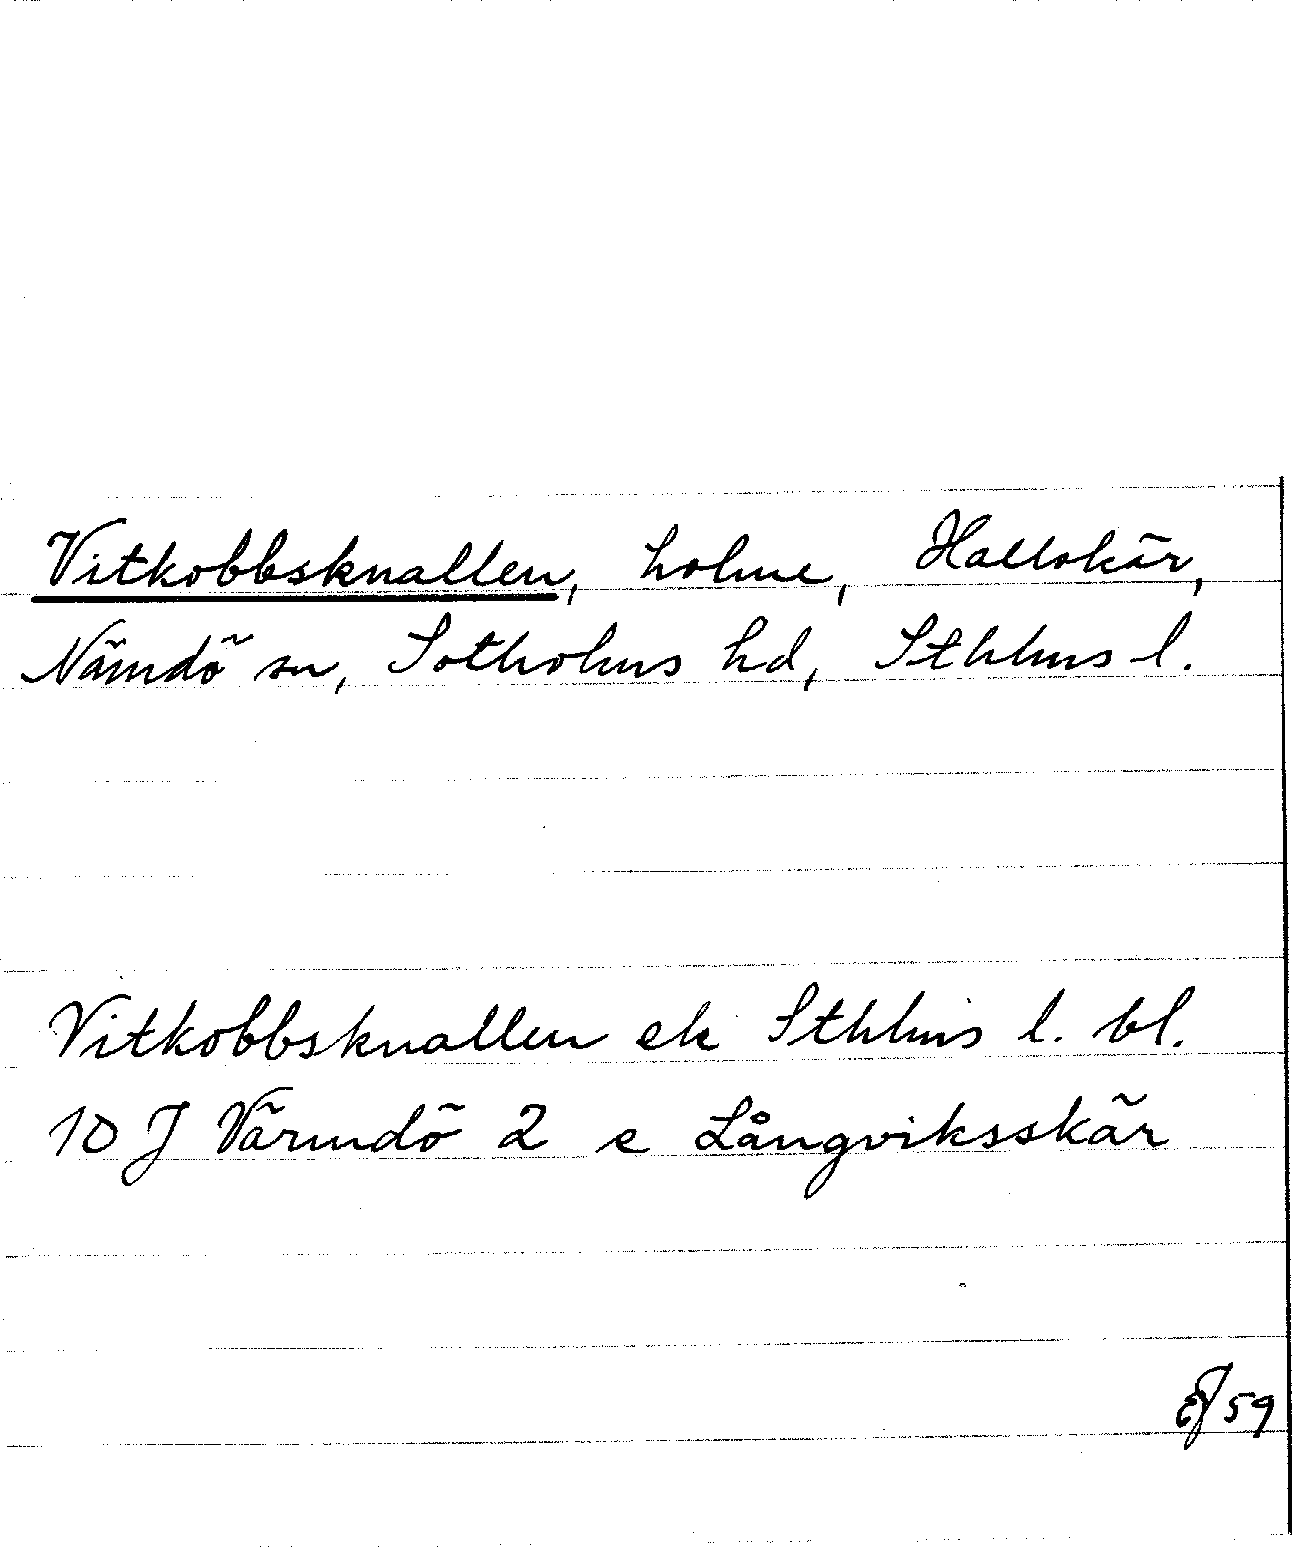 Vitkobbsknallen, holme, Hallskär,
Nämdö sn, Sotholms hd, Sthlms l.
Vitkobbsknallen ek Sthlms l. bl.
10 J Värmdö 2 e Långviksskär
59